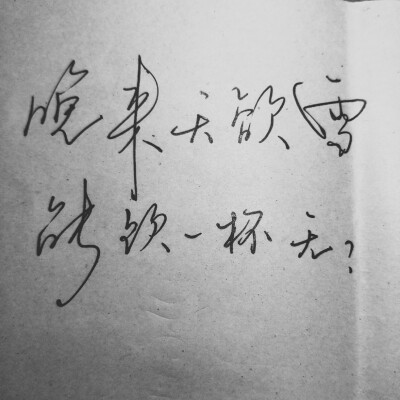 晚来天欲雪
能饮一杯无？